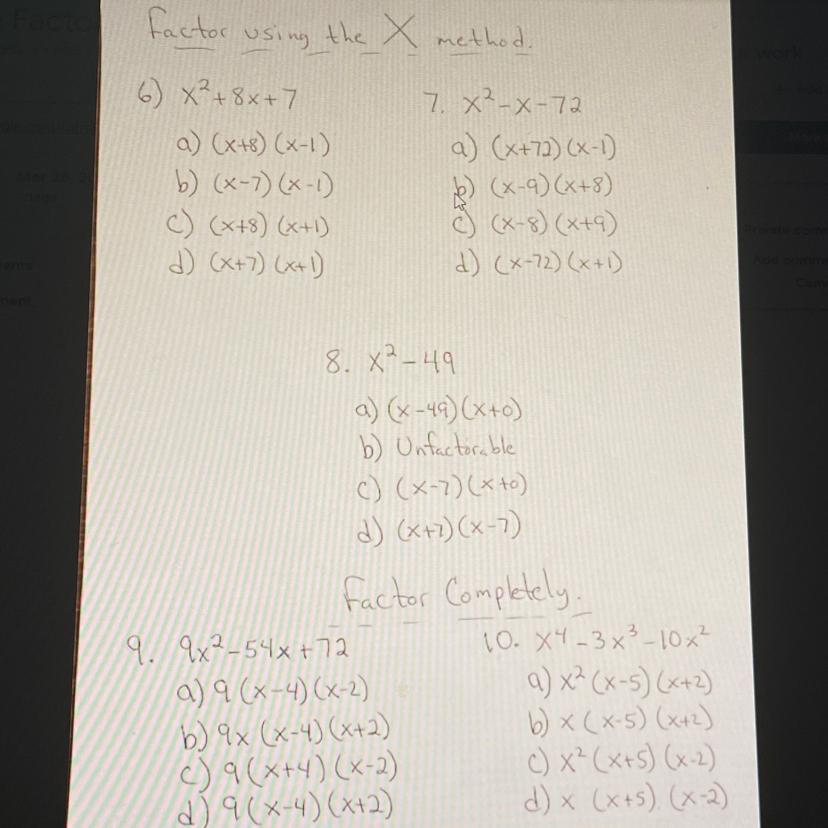 Factor using the X method.
6) x²+8x+7
a) (x+8)(x-1)
b) (x-7)(x-1)
c) (x+8)(x+1)
d) (x+7)(x+1)
7. x²-x-72
a) (x+72)(x-1)
b) (x-9)(x+8)
c) (x-8)(x+9)
d) (x-72)(x+1)
8. x²-49
a) (x-49)(x+0)
b) Unfactorable
c) (x-7)(x+0)
d) (x+7)(x-7)
Factor Completely.
9. 9x²-54x+72
a) 9(x-4)(x-2)
b) 9x(x-4)(x+2)
c) 9(x+4)(x-2)
d) 9(x-4)(x+2)
10. x⁴-3x³-10x²
a) x²(x-5)(x+2)
b) x(x-5)(x+2)
c) x²(x+5)(x-2)
d) x (x+5)(x-2)